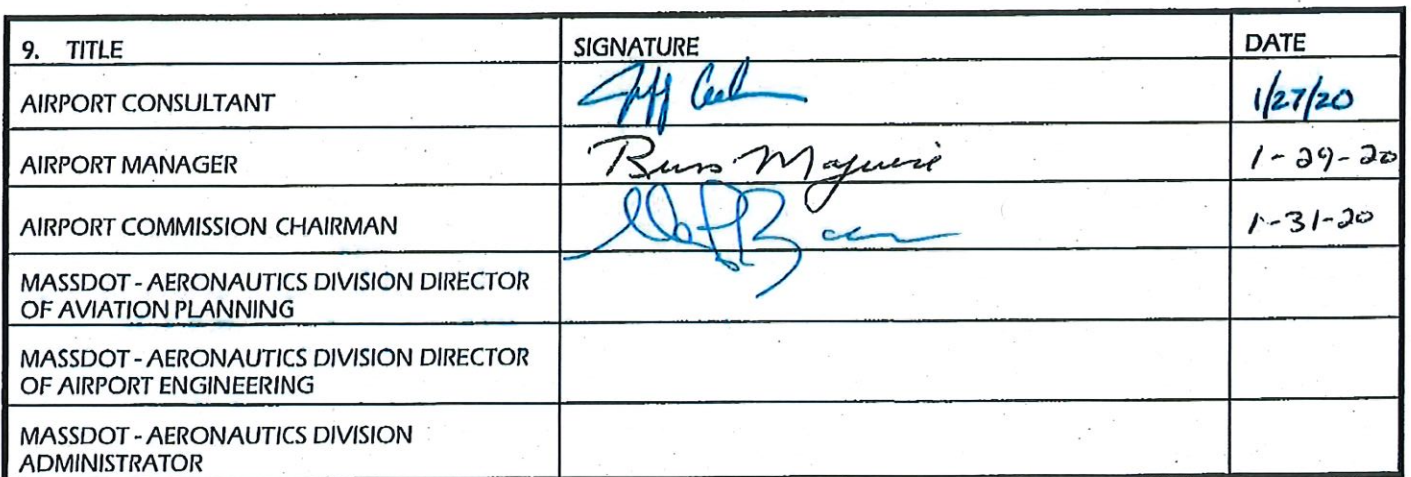 9. TITLE SIGNATURE DATE
AIRPORT CONSULTANT Jeff 1/27/20
AIRPORT MANAGER Russ Maguire 1-29-20
AIRPORT COMMISSION CHAIRMAN 1-31-20
MASSDOT - AERONAUTICS DIVISION DIRECTOR
OF AVIATION PLANNING
MASSDOT - AERONAUTICS DIVISION DIRECTOR
OF AIRPORT ENGINEERING
MASSDOT - AERONAUTICS DIVISION
ADMINISTRATOR